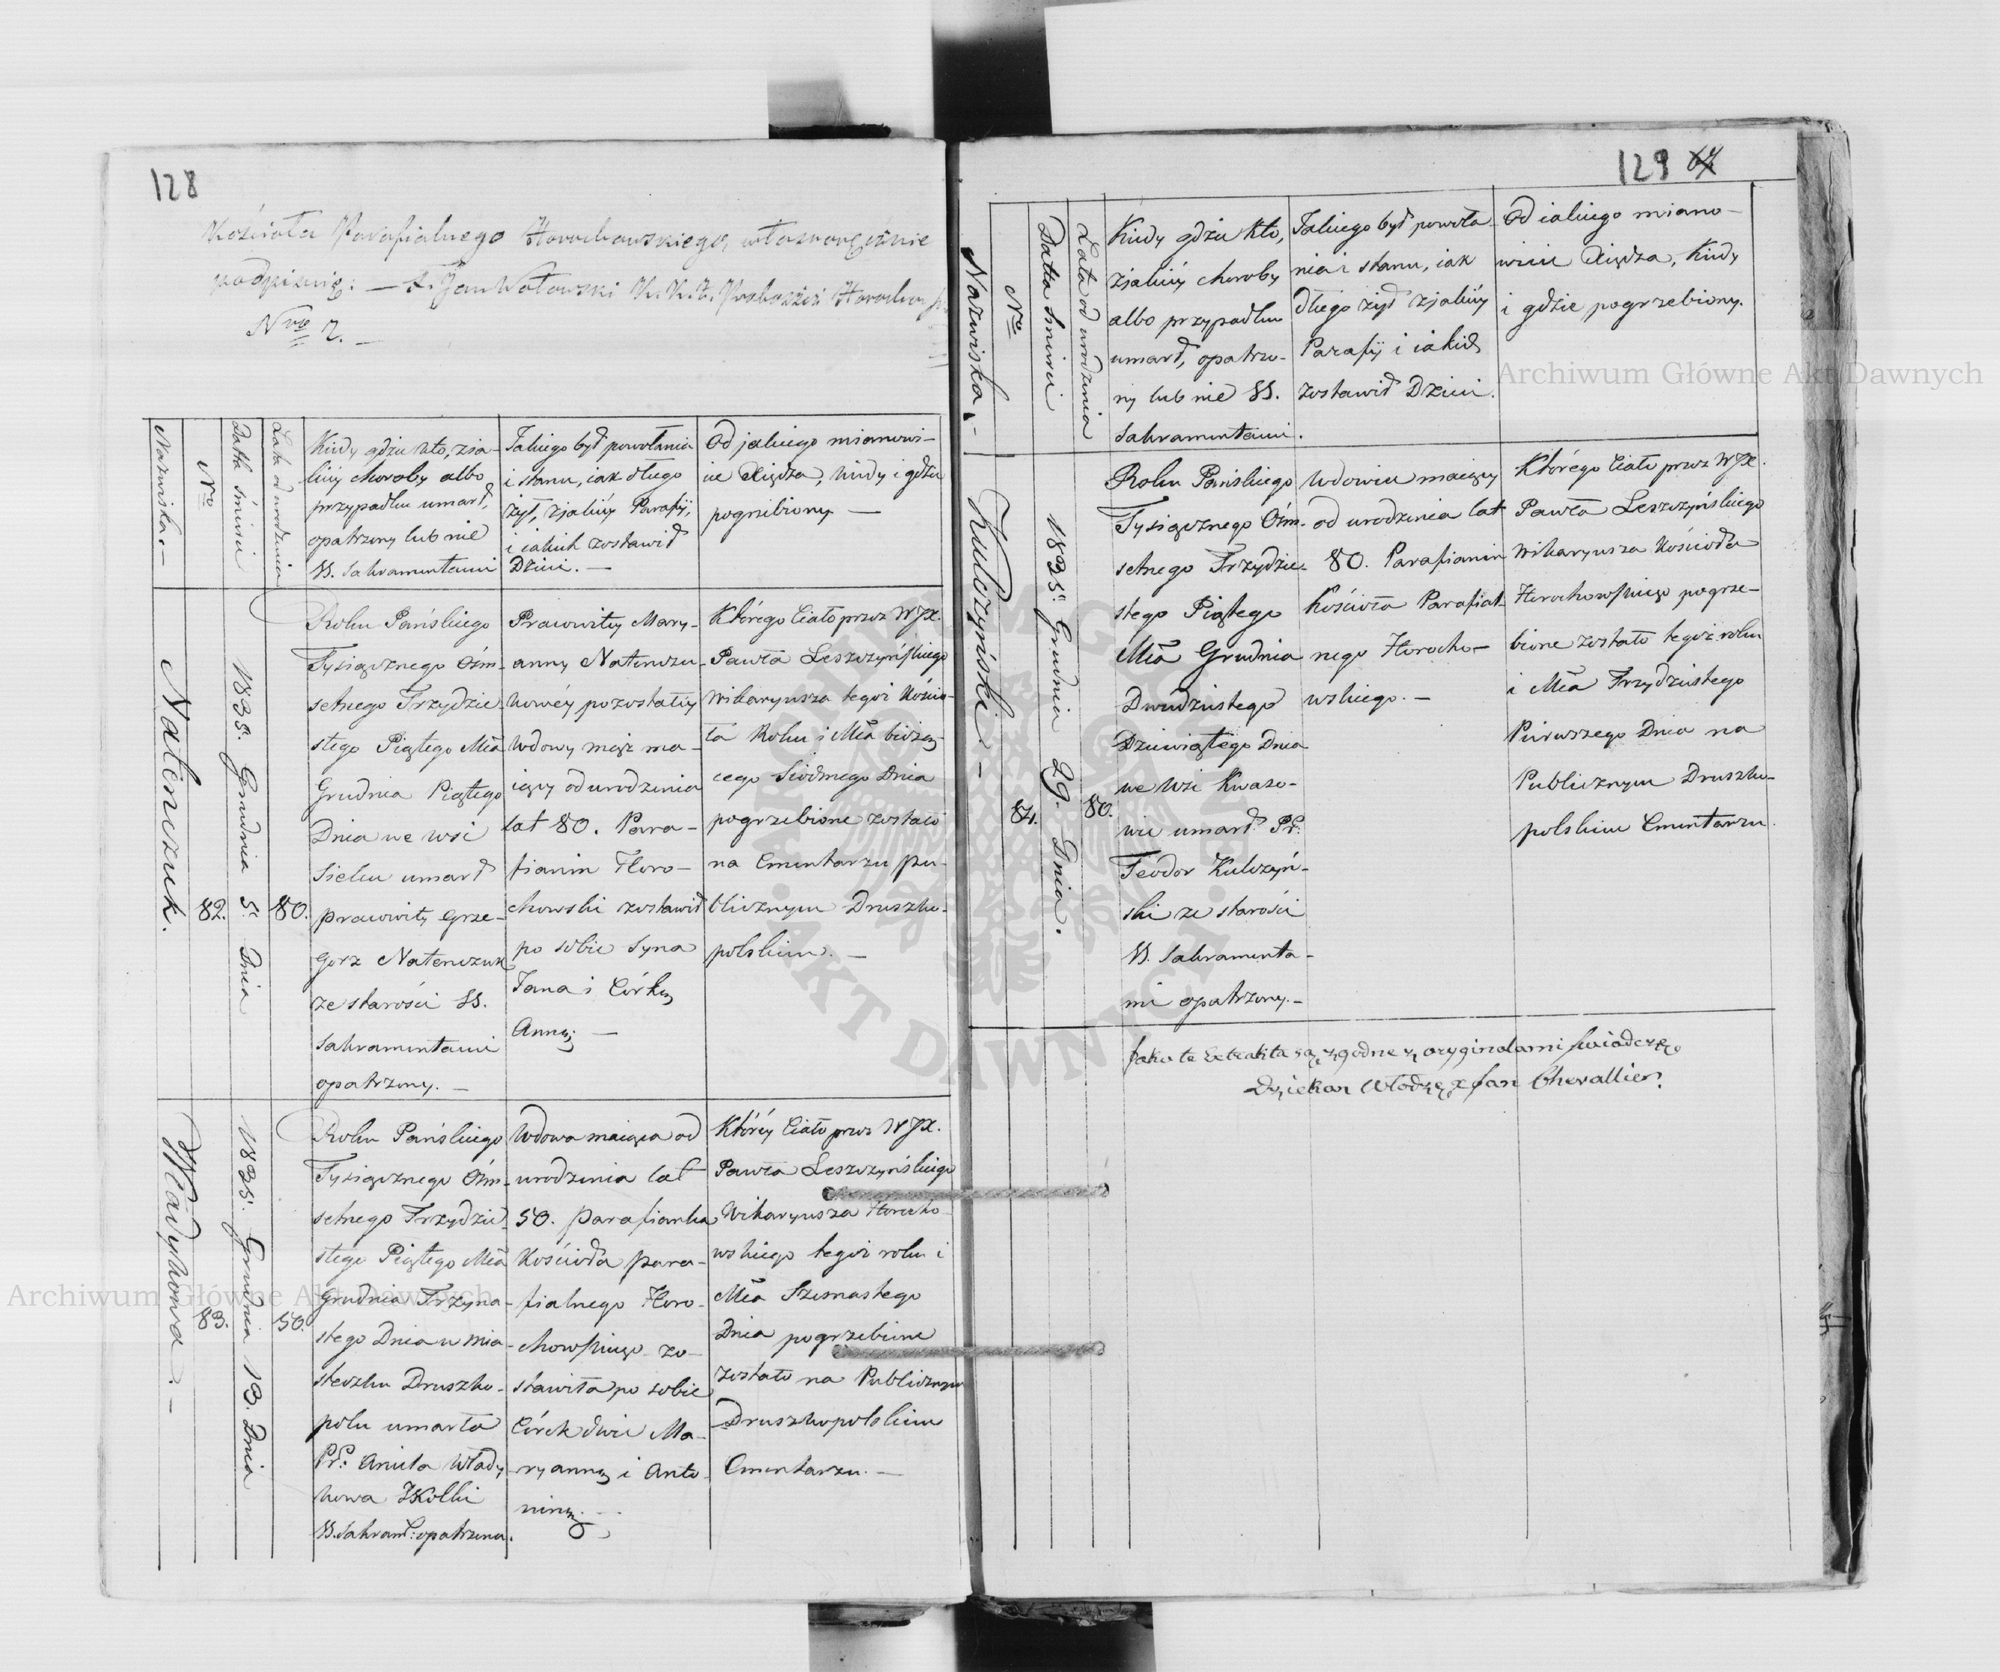 128
Kościoła Parafialnego Horochowskiego, własnoręcznie
podpisuię: — X. Jan Wołowski K.K.Ł. Proboszcz Horochow
Nro 2. —
Nazwiska. —
Nro
Datta śmierci
Lata od urodzenia
Kiedy gdzie kto, z ja-
kiéy choroby albo
przypadku umarł,
opatrzony lub nie
SS. Sakramentami
Jakiego był powołania
i stanu, iak długo
żył, z jakiéy Parafij,
i iakich zostawił
Dzieci. —
Od jakiego mianowi-
cie Xiędza, kiedy i gdzie
pogrzebiony —
Natenczuk.
82.
1835. Grudnia 5. Dnia
80.
Roku Pańskiego
Tysiącznego Ośm-
setnego Trzydzie-
stego Piątego Mca
Grudnia Piątego
Dnia we wsi
Sielcu umarł
pracowity Grze-
gorz Natenczuk
ze starości SS.
Sakramentami
opatrzony. —
Pracowitéy Mary-
anny Natenczu-
kowéy pozostałéy
Wdowy mąż ma-
iący od urodzenia
lat 80. Para-
fianin Horo-
chowski zostawił
po sobie Syna
Jana i Córkę
Annę. —
Którego Ciało przez WJX.
Pawła Leszczyńskiego
Wikaryusza tegoż Kościo-
ła Roku i Mca bieżą-
cego Siódmego Dnia
pogrzebione zostało
na Cmentarzu pu-
blicznym Druszko-
polskim. —
Władykowa. —
83.
1835. Grudnia 13. Dnia
50.
Roku Pańskiego
Tysiącznego Ośm-
setnego Trzydzie-
stego Piątego Mca
Grudnia Trzyna-
stego Dnia w mia-
steczku Druszko-
polu umarła
PP. Aniela Włady-
kowa Z Kolki
SS. Sakram: opatrzona.
Wdowa maiąca od
urodzenia lat
50. parafianka
Kościoła para-
fialnego Horo-
chowskiego zo-
stawiła po sobie
Córek dwie Ma-
ryannę i Anto-
ninę. —
Któréy Ciało przez WJX.
Pawła Leszczyńskiego
Wikaryusza Horocho-
wskiego tegoż roku i
Mca Szesnastego
Dnia pogrzebione
zostało na Publicznym
Druszkopolskim
Cmentarzu. —
129
Nazwiska. —
Nro
Datta śmierci
Lata od urodzenia
Kiedy gdzie kto,
z jakiéy choroby
albo przypadku
umarł, opatrzo-
ny lub nie SS.
Sakramentami.
Jakiego był powoła-
nia i stanu, iak
długo żył z jakiéy
Parafij i iakich
zostawił Dzieci.
Od iakiego miano-
wicie Xiędza, kiedy
i gdzie pogrzebiony.
Kulczyński. —
84.
1835. Grudnia 29. Dnia.
80.
Roku Pańskiego
Tysiącznego Ośm-
setnego Trzydzie-
stego Piątego
Mca Grudnia
Dwudziestego
Dziewiątego Dnia
we wsi Kwaso-
wie umarł PP.
Teodor Kulczyń-
ski ze starości
SS. Sakramenta-
mi opatrzony. —
Wdowiec maiący
od urodzenia lat
80. Parafianin
Kościoła Parafial-
nego Horocho-
wskiego. —
Którego Ciało przez WJX.
Pawła Leszczyńskiego
Wikaryusza Kościoła
Horochowskiego pogrze-
bione zostało tegoż roku
i Mca Trzydziestego
Pierwszego Dnia na
Publicznym Druszko-
polskim Cmentarzu.
Jako te Extrakta są zgodne z oryginałami świadczę
Dziekan Włodz. X Jan Chevallier.
Archiwum Główne Akt Dawnych
Archiwum Główne Akt Dawnych
ARCHIWUM GŁÓWNE · AKT DAWNYCH ·